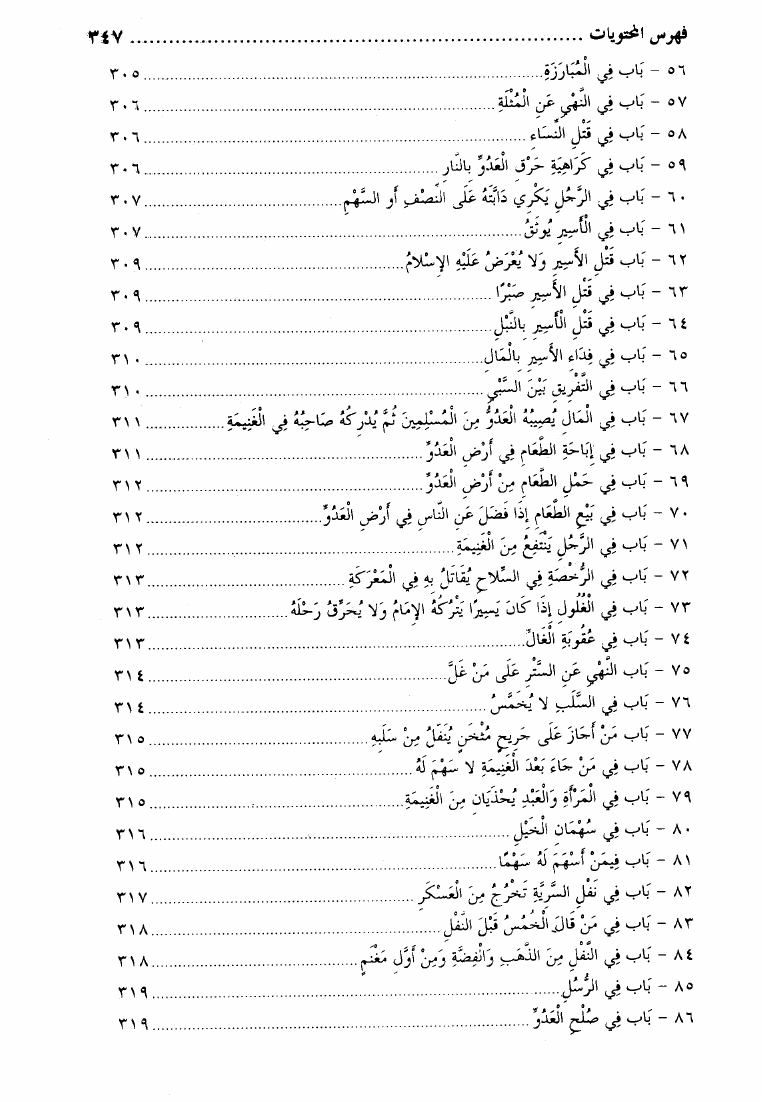 فهرس المحتويات ........ ٣٤٧
٥٦ - بَاب فِي الْمُبَارَزَةِ ........ ٣٠٥
٥٧ - بَاب فِي النَّهْيِ عَنِ الْمُثْلَةِ ........ ٣٠٦
٥٨ - بَاب فِي قَتْلِ النِّسَاءِ ........ ٣٠٦
٥٩ - بَاب فِي كَرَاهِيَةِ حَرْقِ الْعَدُوِّ بِالنَّارِ ........ ٣٠٦
٦٠ - بَاب فِي الرَّجُلِ يَكْرِي دَابَّتَهُ عَلَى النِّصْفِ أَو السَّهْمِ ........ ٣٠٧
٦١ - بَاب فِي الْأَسِيرِ يُوثَقُ ........ ٣٠٧
٦٢ - بَاب قَتْلِ الأَسِيرِ وَلا يُعْرَضُ عَلَيْهِ الإِسْلامُ ........ ٣٠٩
٦٣ - بَاب فِي قَتْلِ الأَسِيرِ صَبْرًا ........ ٣٠٩
٦٤ - بَاب فِي قَتْلِ الْأَسِيرِ بِالنَّبْلِ ........ ٣٠٩
٦٥ - بَاب فِي فِدَاءِ الأَسِيرِ بِالْمَالِ ........ ٣١٠
٦٦ - بَاب فِي التَّفْرِيقِ بَيْنَ السَّبْيِ ........ ٣١٠
٦٧ - بَاب فِي الْمَالِ يُصِيبُهُ الْعَدُوُّ مِنَ الْمُسْلِمِينَ ثُمَّ يُدْرِكُهُ صَاحِبُهُ فِي الْغَنِيمَةِ ........ ٣١١
٦٨ - بَاب فِي إِبَاحَةِ الطَّعَامِ فِي أَرْضِ الْعَدُوِّ ........ ٣١١
٦٩ - بَاب فِي حَمْلِ الطَّعَامِ مِنْ أَرْضِ الْعَدُوِّ ........ ٣١٢
٧٠ - بَاب فِي بَيْعِ الطَّعَامِ إِذَا فَضَلَ عَنِ النَّاسِ فِي أَرْضِ الْعَدُوِّ ........ ٣١٢
٧١ - بَاب فِي الرَّجُلِ يَنْتَفِعُ مِنَ الْغَنِيمَةِ ........ ٣١٢
٧٢ - بَاب فِي الرُّخْصَةِ فِي السِّلاحِ يُقَاتَلُ بِهِ فِي الْمَعْرَكَةِ ........ ٣١٣
٧٣ - بَاب فِي الْغُلُولِ إِذَا كَانَ يَسِيرًا يَتْرُكُهُ الإِمَامُ وَلا يُحَرِّقُ رَحْلَهُ ........ ٣١٣
٧٤ - بَاب فِي عُقُوبَةِ الْغَالِّ ........ ٣١٣
٧٥ - بَاب النَّهْيِ عَنِ السَّتْرِ عَلَى مَنْ غَلَّ ........ ٣١٤
٧٦ - بَاب فِي السَّلَبِ لا يُخَمَّسُ ........ ٣١٤
٧٧ - بَاب مَنْ أَجَازَ عَلَى جَرِيحٍ مُثْخَنٍ يُنَفَّلُ مِنْ سَلَبِهِ ........ ٣١٥
٧٨ - بَاب فِي مَنْ جَاءَ بَعْدَ الْغَنِيمَةِ لا سَهْمَ لَهُ ........ ٣١٥
٧٩ - بَاب فِي الْمَرْأَةِ وَالْعَبْدِ يُحْذَيَانِ مِنَ الْغَنِيمَةِ ........ ٣١٥
٨٠ - بَاب فِي سُهْمَانِ الْخَيْلِ ........ ٣١٦
٨١ - بَاب فِيمَنْ أَسْهَمَ لَهُ سَهْمًا ........ ٣١٦
٨٢ - بَاب فِي نَفْلِ السَّرِيَّةِ تَخْرُجُ مِنَ الْعَسْكَرِ ........ ٣١٧
٨٣ - بَاب فِي مَنْ قَالَ الْخُمُسُ قَبْلَ النَّفْلِ ........ ٣١٨
٨٤ - بَاب فِي النَّفْلِ مِنَ الذَّهَبِ وَالْفِضَّةِ وَمِنْ أَوَّلِ مَغْنَمٍ ........ ٣١٨
٨٥ - بَاب فِي الرُّسُلِ ........ ٣١٩
٨٦ - بَاب فِي صُلْحِ الْعَدُوِّ ........ ٣١٩